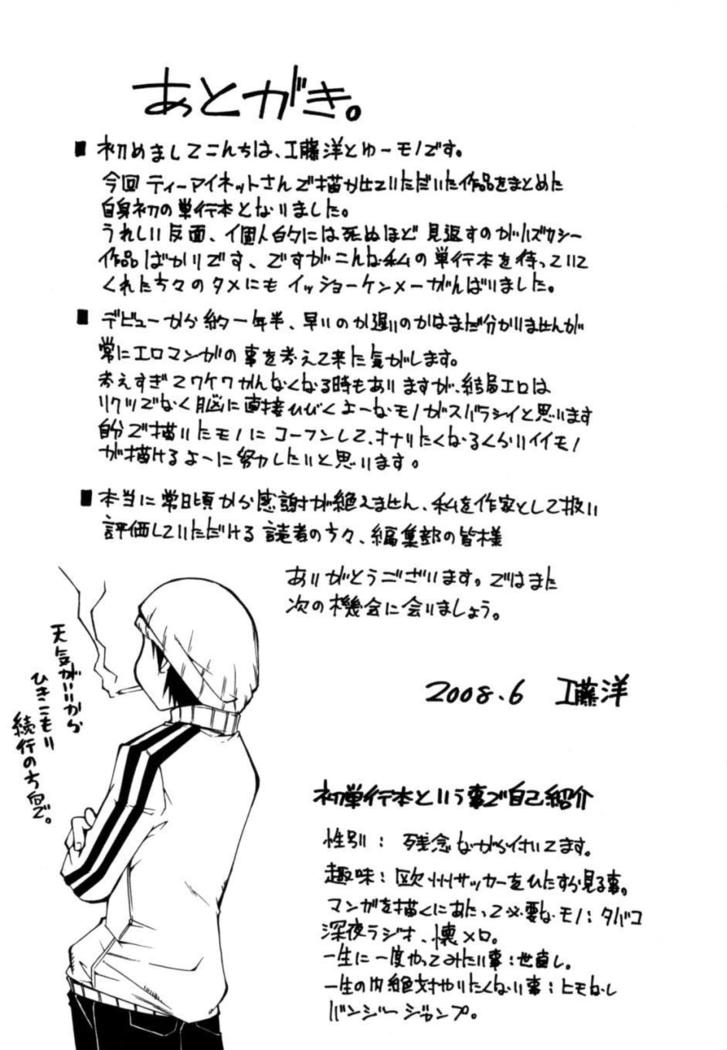 あとがき。
■ 初めましてこんちは、工藤洋とゆーモノです。
今回 ティーアイネットさんで描かせていただいた作品をまとめた
自身初の単行本となりました。
うれしい反面、イ固人的には死ぬほど見返すのがハズカシー
作品ばかりです、ですがこんな私の単行本を待っていて
くれた方々のタメにも イッショーケンメーがんばりました。
■ デビューから約一年半、早いのか遅いのかはまだ分かりませんが
常にエロマンガの事を考えて来た気がします。
考えすぎてワケワカんなくなる時もありますが、結局エロは
リクツでなく脳に直接ひびくよーなモノがスバラシイと思います
自分で描いたモノにコーフンして、オナりたくなるくらいイイモノ
が描けるよーに努力したいと思います。
■ 本当に常日頃から感謝が絶えません、私を作家として扱い
評価していただける 読者の方々、編集部の皆様
ありがとうございます。ではまた
次の機会に会いましょう。
2008.6 工藤洋
天気がいいから
ひきこもり
続行の方向で。
初単行本という事で自己紹介
性別： 残念ながら付いてます。
趣味：欧州サッカーをひたすら見る事。
マンガを描くにあたって必要なモノ：タバコ
深夜ラジオ、懐メロ。
一生に一度やってみたい事：世直し。
一生の内絶対やりたくない事：ヒモなし
バンジージャンプ。